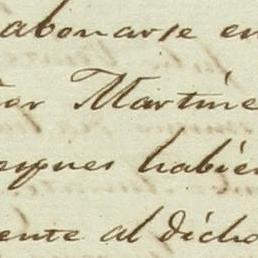 abonarse en
or Martíne
esques habién
ente al dicho